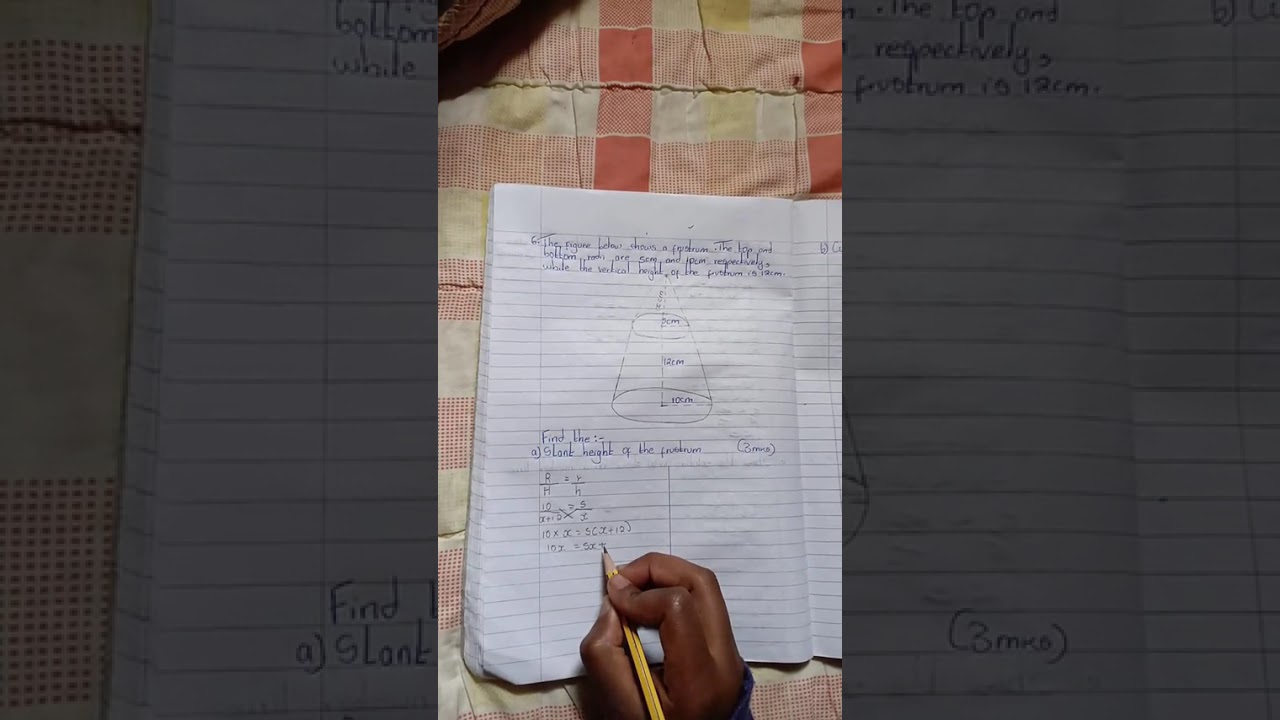 6. The figure below shows a frustrum. The top and
bottom radii are 5cm and 10cm respectively,
while the vertical height of the frustrum is 12cm.
5cm
12cm
10cm
Find the :-
a) Slant height of the frustrum (3mks)
R/H = r/h
10/x+12 = 5/x
10 × x = 5(x+12)
10x = 5x +
b)